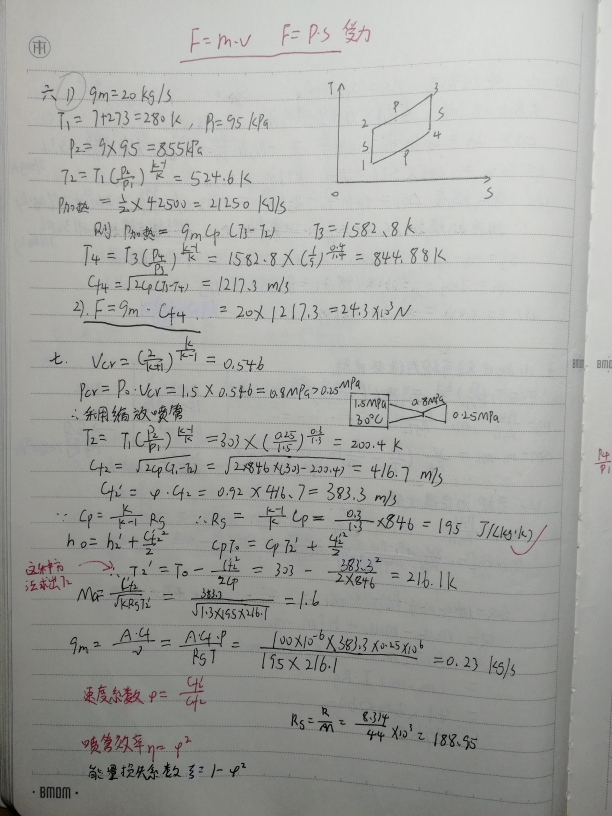 F=m·v F=P·S 受力
雨
六 1) qm=20kg/s
T₁=7+273=280K, P₁=95kPa
P₂=9×95=855kPa
T₂=T₁(P₂/P₁)^((k-1)/k)=524.6K
P加热=1/2×42500=21250 KJ/s
则 P加热=qmCp(T₃-T₂) T₃=1582.8K
T₄=T₃(P₄/P₃)^((k-1)/k)=1582.8×(1/9)^(0.4/1.4)=844.88K
Cf4=√2Cp(T₃-T₄)=1217.3 m/s
2). F=qm·Cf4=20×1217.3=24.3×10³N
T
3
2 P S
S 4
1 P
0 S
七. Vcr=(2/(k+1))^(k/(k-1))=0.546
Pcr=P₀·Vcr=1.5×0.546=0.8MPa>0.25MPa
∴采用缩放喷管
1.5MPa 30℃ 0.8MPa 0.25MPa
T₂=T₁(P₂/P₁)^((k-1)/k)=303×(0.25/1.5)^(0.3/1.3)=200.4K
Cf2=√2Cp(T₁-T₂)=√2×846×(303-200.4)=416.7 m/s
Cf2'=φ·Cf2=0.92×416.7=383.3 m/s
∵Cp=k/(k-1) Rg ∴Rg=(k-1)/k Cp=0.3/1.3×846=195 J/(kg·k)
h₀=h₂'+Cf2'²/2 CpT₀=CpT₂'+Cf2'²/2
∴T₂'=T₀-Cf2'²/2Cp=303-383.3²/(2×846)=216.1K
Ma=Cf2'/√kRgT₂'=383.3/√1.3×195×216.1=1.6
qm=A·Cf/v=A·Cf·P/RgT=100×10⁻⁶×383.3×0.25×10⁶/(195×216.1)=0.23 kg/s
速度系数φ=Cf2'/Cf2
Rg=R/M=8.314/44×10³=188.95
喷管效率η=φ²
能量损失系数ξ=1-φ²
·BMDM·
P4/P1